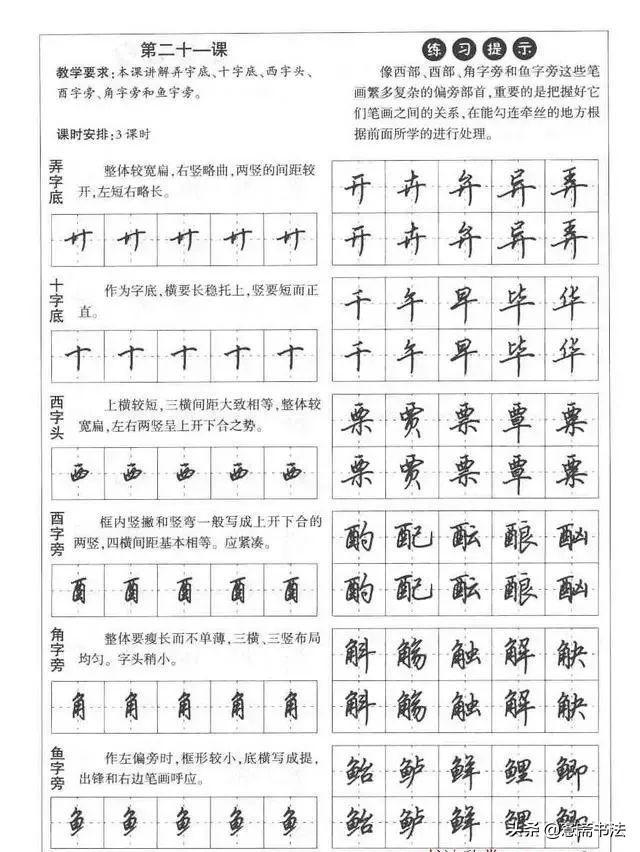 第二十一课
教学要求:本课讲解弄字底、十字底、西字头、
酉字旁、角字旁和鱼字旁。
课时安排:3课时
练习提示
像西部、酉部、角字旁和鱼字旁这些笔
画繁多复杂的偏旁部首,重要的是把握好它
们笔画之间的关系,在能勾连牵丝的地方根
据前面所学的进行处理。
弄字底
整体较宽扁,右竖略曲,两竖的间距较
开,左短右略长。
廾 廾 廾 廾 廾
开 卉 弁 异 弄
开 卉 弁 异 弄
十字底
作为字底,横要长稳托上,竖要短而正
直。
十 十 十 十 十
千 午 早 毕 华
千 午 早 毕 华
西字头
上横较短,三横间距大致相等,整体较
宽扁,左右两竖呈上开下合之势。
西 西 西 西 西
栗 贾 票 覃 粟
栗 贾 票 覃 粟
酉字旁
框内竖撇和竖弯一般写成上开下合的
两竖,四横间距基本相等。应紧凑。
酉 酉 酉 酉 酉
酌 配 酝 酿 酗
酌 配 酝 酿 酗
角字旁
整体要瘦长而不单薄,三横、三竖布局
均匀。字头稍小。
角 角 角 角 角
斛 觞 触 解 觖
斛 觞 触 解 觖
鱼字旁
作左偏旁时,框形较小,底横写成提,
出锋和右边笔画呼应。
鱼 鱼 鱼 鱼 鱼
鲐 鲈 鲜 鲤 鲫
鲐 鲈 鲜 鲤 鲫
头条